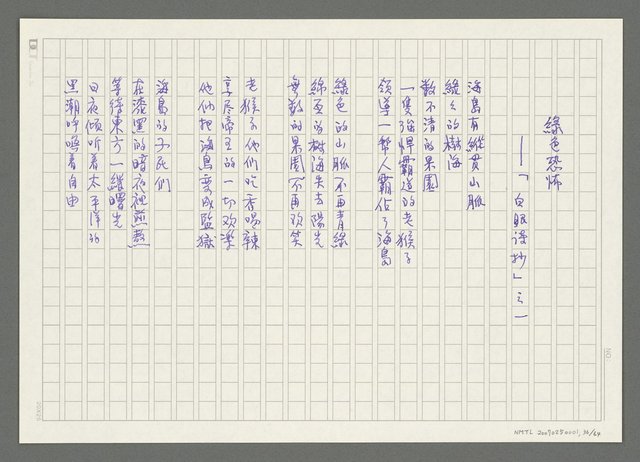 綠色恐怖
——「白眼詩抄」之一
海島有縱貫山脈
綠色的樹海
數不清的果園
一隻強悍霸道的老猴子
領導一幫人霸佔了海島
綠色的山脈不再青綠
綿亙的樹海失去陽光
無數的果園不再欢笑
老猴子他們吃香喝辣
享尽帝王的一切欢樂
他們把海島变成監獄
海島的子民們
在漆黑的暗夜裡煎熬
等待東方一線曙光
日夜傾听着太平洋的
黑潮呼喚着自由
NO:
20X25
NMTL 20090250001, 30/64